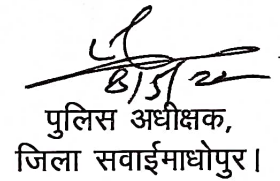 पुलिस अधीक्षक,
जिला सवाईमाधोपुर।